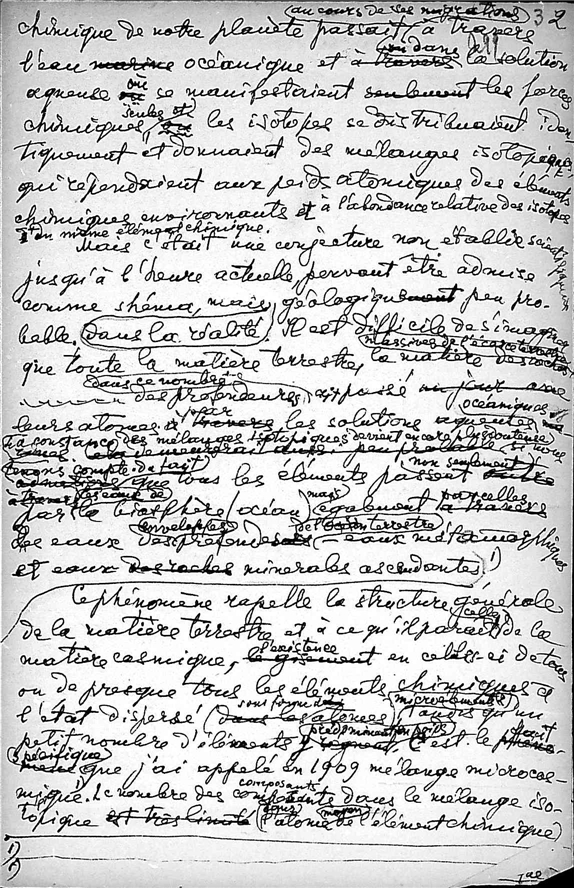 (au cours de ses migrations) 32
chimique de notre planète passait à travers
l'eau marine océanique et à travers ou dans la solution
aqueuse où se manifestaient seulement les forces
chimiques, seules et les isotopes se distribuaient iden-
tiquement et donnaient des mélanges isotopiques,
qui répondaient aux poids atomiques des éléments
chimiques environnants et à l'abondance relative des isotopes
d'un même élément chimique.
Mais c'était une conjecture non établie
jusqu'à l'heure actuelle, pouvant être admise
comme shéma, mais géologiquement peu pro-
bable dans la réalité. Il est difficile de s'imaginer
massives de l'écorce terrestre
que toute la matière terrestre, la matière des roches
dans ce nombre
des profondeurs,
océaniques
leurs atomes à travers par les solutions aqueuses
la constance des mélanges isotopiques devient encore plus douteuse
tenons compte du fait non seulement
que tous les éléments passent
à travers les eaux de mais parcelles
par la biosphère (océan) également à travers
enveloppes de l'écorce terrestre
les eaux des profondeurs – eaux métamorphiques
et eaux des roches minérales ascendantes 1)
Ce phénomène rapelle la structure générale
celle
de la matière terrestre et à ce qu'il parait de la
l'existence
matière cosmique, le gisement en celles ci de tous
ou de presque tous les éléments chimiques à
sous forme microéléments
l'état dispersé (dans les atomes), tandis qu'un
prédominant
petit nombre d'éléments y règnent. C'est le fait
spécifique
que j'ai appelé en 1909 mélange microcos-
composants
mique. 1) Le nombre des composants dans le mélange iso-
topique est très limité (l'atome moyen de l'élément chimique)
1)